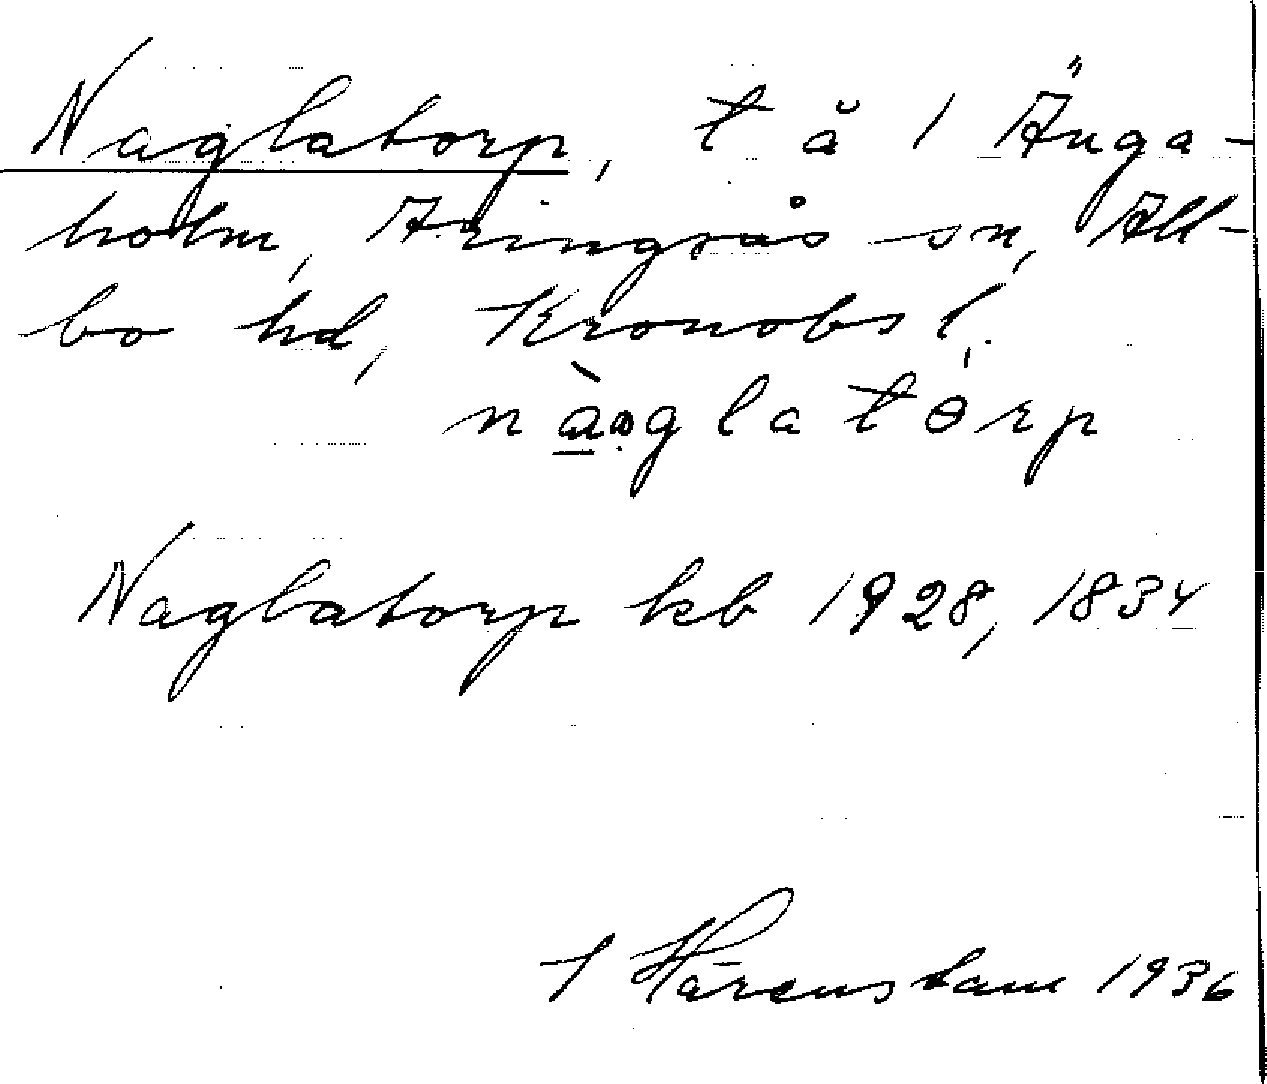 Naglatorp, t å 1 Änga-
holm, Aringsås sn, All-
bo hd, Kronobs l.
nàglatørp
Naglatorp kb 1928, 1834
Härenstam 1936